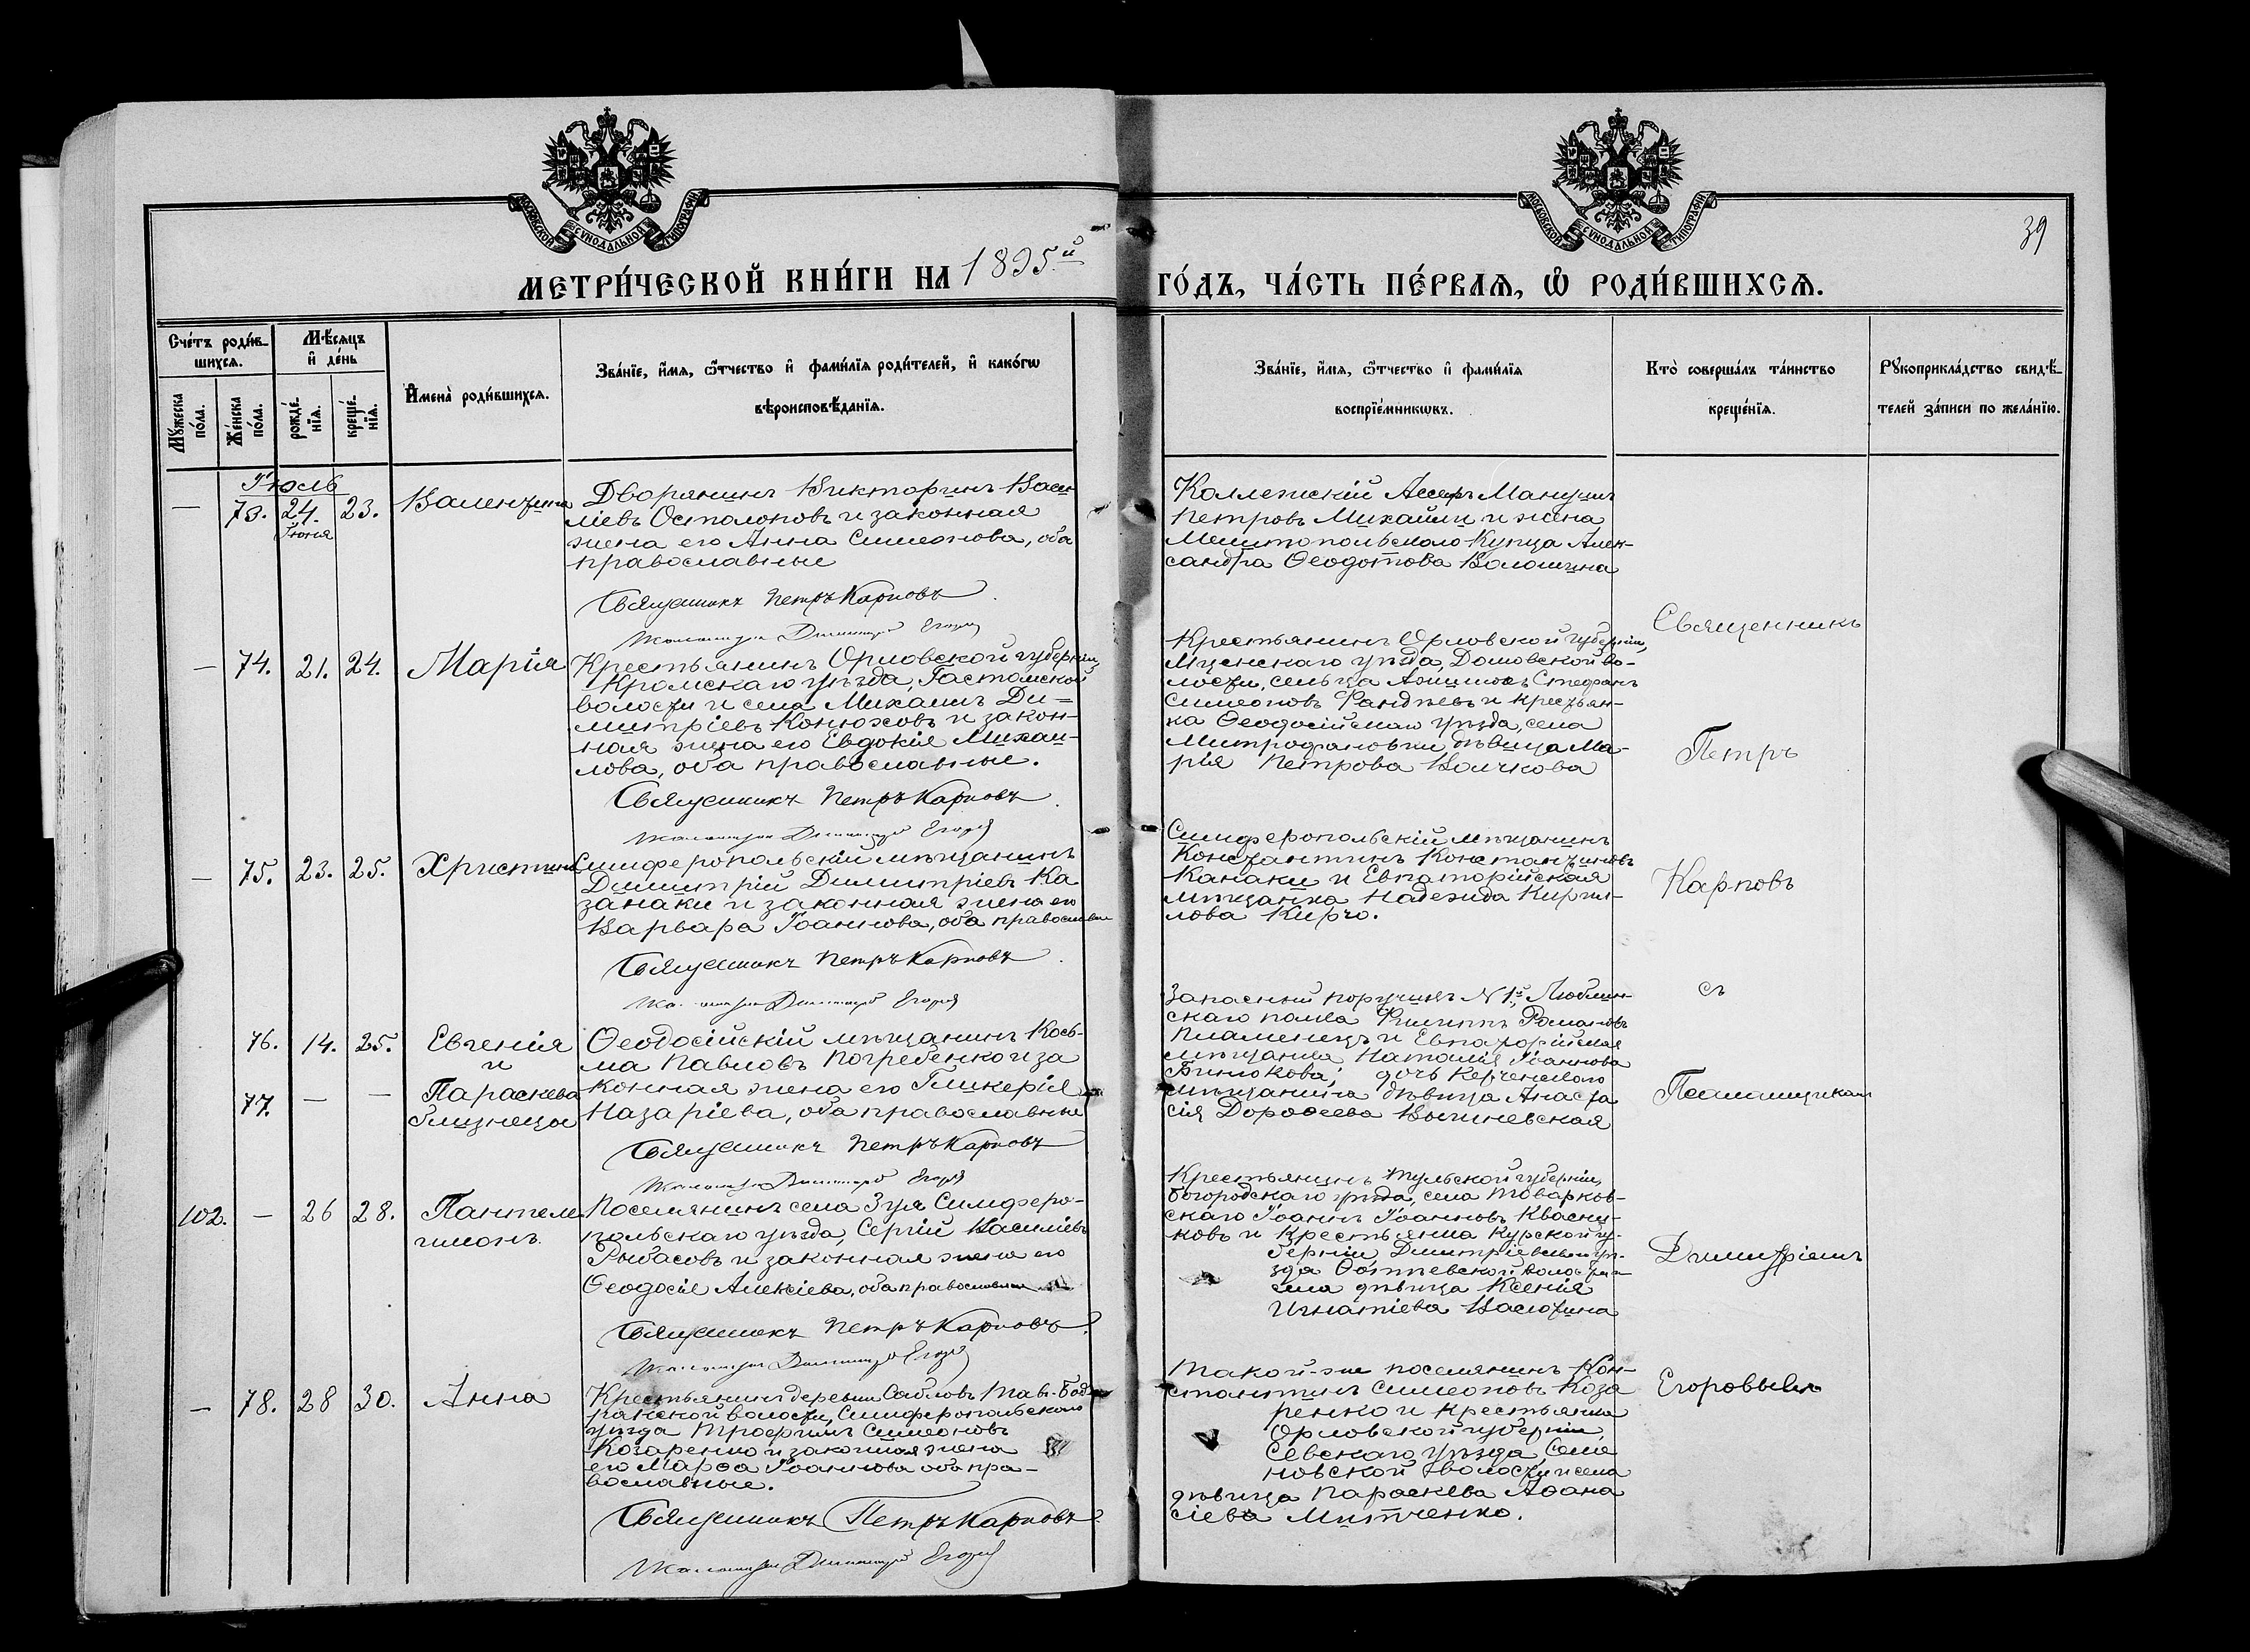 МОСКОВСКОЙ СѴНОДАЛЬНОЙ ТИПОГРАФІИ
МОСКОВСКОЙ СѴНОДАЛЬНОЙ ТИПОГРАФІИ
39
МЕТРИ́ЧЕСКОЙ КНИ́ГИ НА 1895й ГО́ДЪ, ЧА́СТЬ ПЕ́РВАѦ, Ѡ РОДИ́ВШИХСѦ.
Сче́тъ роди́в-
шихсѧ.
Мѣ́сѧцъ
и҆ де́нь
Мꙋ́жеска
по́ла.
Же́нска
по́ла.
рожде́-
нїѧ.
креще́-
нїѧ.
И҆мена̀ роди́вшихсѧ.
Зва́нїе, и҆́мѧ, ѻ҆́тчество и҆ фамѝлїѧ роди́телей, и҆ како́гѡ
вѣроисповѣ́данїѧ.
Зва́нїе, и҆́мѧ, ѻ҆́тчество и҆ фамѝлїѧ
воспрїе́мникѡвъ.
Кто̀ соверша́лъ та́инство
креще́нїѧ.
Рꙋкоприкла́дство свидѣ́-
телей за́писи по жела́нїю.
Іюль
— 73. 24. 23. Валентина
Іюня
Дворянинъ Викторинъ Васи-
ліевъ Остолоповъ и законная
жена его Анна Симеонова, оба
православные
Священникъ Петръ Карповъ
Псаломщикъ Димитрій Егоровъ
Коллежскій Ассеръ Мануилъ
Петровъ Михайли и жена
Мелитопольскаго Купца Алек-
сандра Ѳеодотова Волошина
— 74. 21. 24. Марія
Крестьянинъ Орловской губерніи,
Кромскаго уѣзда, Гастомской
волости и села Михаилъ Ди-
митріевъ Конюховъ и закон-
ная жена его Евдокія Михаи-
лова, оба православные.
Священникъ Петръ Карповъ
Псаломщикъ Димитрій Егоровъ
Крестьянинъ Орловской губерніи,
Мценскаго уѣзда, Домовской во-
лости, сельца Стефанъ
Симеоновъ и крестьян-
ка Ѳеодосійскаго уѣзда, села
Митрофановки дѣвица Ма-
рія Петрова Волчкова
— 75. 23. 25. Христина
Симферопольскій мѣщанинъ
Димитрій Димитріевъ Ка
занаки и законная жена его
Варвара Іоаннова, оба православные
Священникъ Петръ Карповъ
Псаломщикъ Димитрій Егоровъ
Симферопольскій мѣщанинъ
Константинъ Константиновъ
Канаки и Евпаторійская
мѣщанка Надежда Кирил-
лова Кирчо.
76. 14. 25. Евгенія
и
77. — — Параскева
близнецы
Ѳеодосійскій мѣщанинъ Кось-
ма Павловъ Погребенко и за
конная жена его Гликерія
Назаріева, оба православные
Священникъ Петръ Карповъ
Псаломщикъ Димитрій Егоровъ
Запасный поручикъ N 1й Люблин-
скаго полка Филиппъ Романовъ
Пламенецъ и Евпаторійская
мѣщанка Наталія Іоаннова
Бинюкова; дочь Керченскаго
мѣщанина дѣвица Анаста
сія Дороѳеева Вычневская
102. — 26 28. Пантеле
имонъ
Поселянинъ села Зуя Симферо-
польскаго уѣзда, Сергій Василіевъ
Рыбасовъ и законная жена его
Ѳеодосія Алексіева, оба православные
Священникъ Петръ Карповъ
Псаломщикъ Димитрій Егоровъ
Крестьянинъ Тульской губерніи,
Богородскаго уѣзда, села Товарков-
скаго Іоаннъ Іоанновъ Квасни-
ковъ и Крестьянка Курской гу-
берніи Димитріевскаго уѣ-
зда волости и
села дѣвица Ксенія
Игнатіева Васютина
— 78. 28 30. Анна
Крестьянинъ деревни Сабловъ Тав-Бад-
ракской волости, Симферопольскаго
уѣзда Трофимъ Симеоновъ
Козаренко и законная жена
его Марѳа Іоаннова оба пра-
вославные.
Священникъ Петръ Карповъ
Псаломщикъ Димитрій Егоровъ
Такой-же поселянинъ Кон-
стантинъ Симеоновъ Коза
ренко и крестьянка
Орловской губерніи
Севскаго уѣзда, Семе
новской волости и села
дѣвица Параскева Аѳана
сіева Митченко.
Священникъ
Петръ
Карповъ
съ
Псаломщикомъ
Димитріемъ
Егоровымъ